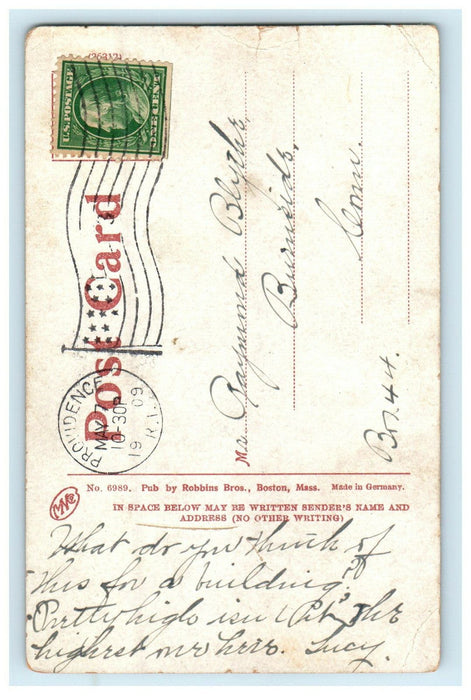 (26313)
U.S. POSTAGE
ONE CENT
Post Card
PROVIDENCE
MAY 7
10-30P
19 09
R.I.
Mr Raymond Blythe,
Burnside,
Conn.
Box 44.
No. 6989. Pub by Robbins Bros., Boston, Mass. Made in Germany.
IN SPACE BELOW MAY BE WRITTEN SENDER'S NAME AND
ADDRESS (NO OTHER WRITING)
What do you think of
this for a building?
Pretty high isn't it? The
highest one here. Lucy.